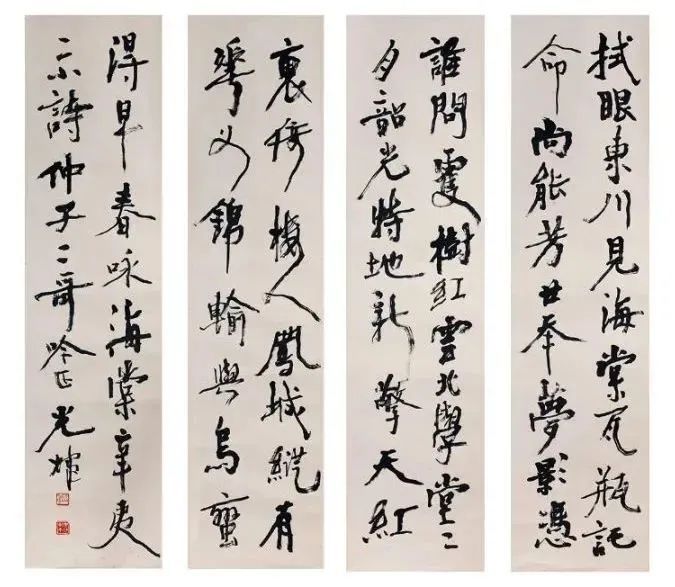 拭眼東川見海棠瓦瓶託
命尚能芳廿年夢影憑
誰問雙樹紅雲北學堂二
月韶光特地新擎天紅
裏倚樓人鳳城縱有
華如錦輸與烏蠻
得早春 詠海棠辛夷
示詩仲子二哥吟正 光煒